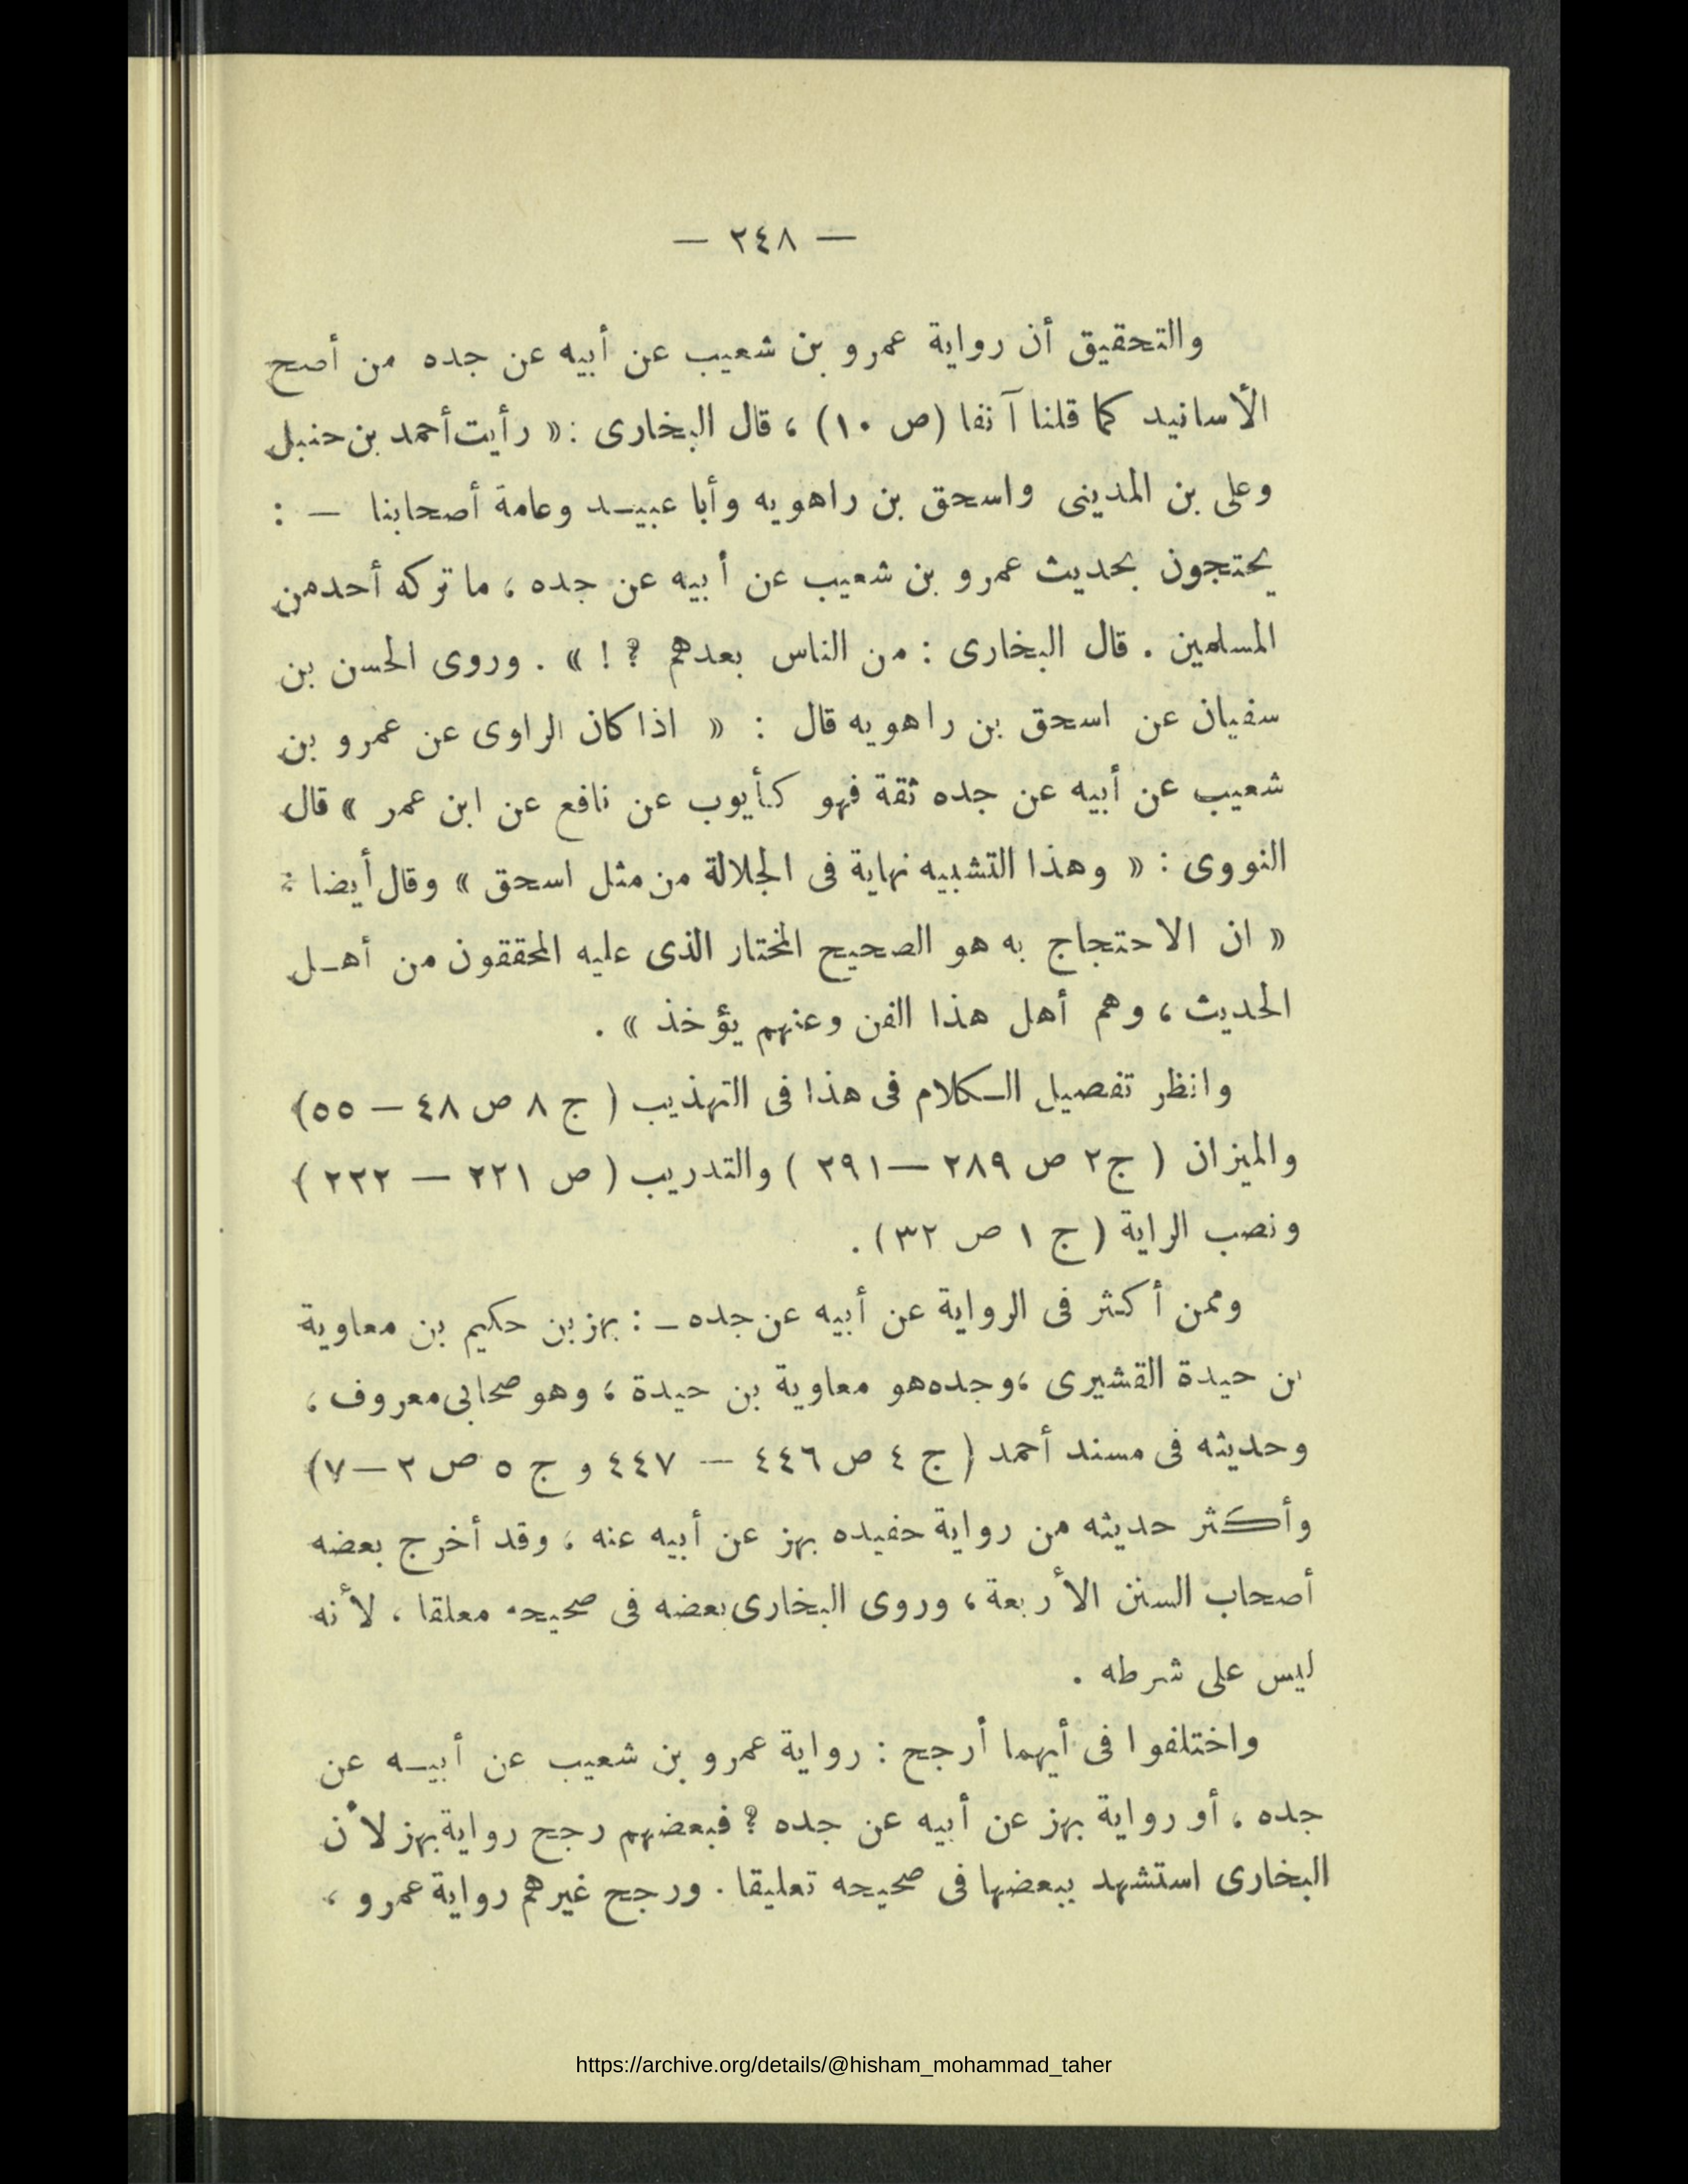 — ٢٤٨ —
والتحقيق أن رواية عمرو بن شعيب عن أبيه عن جده من أصح
الأسانيد كما قلنا آنفا (ص ١٠) ، قال البخارى : « رأيت أحمد بن حنبل
وعلى بن المدينى واسحق بن راهويه وأبا عبيد وعامة أصحابنا — :
يحتجون بحديث عمرو بن شعيب عن أبيه عن جده ، ما تركه أحد من
المسلمين . قال البخارى : من الناس بعدهم ؟ ! » . وروى الحسن بن
سفيان عن اسحق بن راهويه قال : « اذا كان الراوى عن عمرو بن
شعيب عن أبيه عن جده ثقة فهو كأيوب عن نافع عن ابن عمر » قال
النووى : « وهذا التشبيه نهاية فى الجلالة من مثل اسحق » وقال أيضا :
« ان الاحتجاج به هو الصحيح المختار الذى عليه المحققون من أهل
الحديث ، وهم أهل هذا الفن وعنهم يؤخذ » .
وانظر تفصيل الكلام فى هذا فى التهذيب ( ج ٨ ص ٤٨ — ٥٥)
والميزان ( ج٢ ص ٢٨٩ — ٢٩١ ) والتدريب ( ص ٢٢١ — ٢٢٢ )
ونصب الراية ( ج ١ ص ٣٢) .
وممن أكثر فى الرواية عن أبيه عن جده — : بهز بن حكيم بن معاوية
بن حيدة القشيرى ، وجده هو معاوية بن حيدة ، وهو صحابى معروف ،
وحديثه فى مسند أحمد ( ج ٤ ص ٤٤٦ — ٤٤٧ و ج ٥ ص ٢ — ٧)
وأكثر حديثه من رواية حفيده بهز عن أبيه عنه ، وقد أخرج بعضه
أصحاب السنن الأربعة ، وروى البخارى بعضه فى صحيحه معلقا ، لأنه
ليس على شرطه .
واختلفوا فى أيهما أرجح : رواية عمرو بن شعيب عن أبيه عن
جده ، أو رواية بهز عن أبيه عن جده ؟ فبعضهم رجح رواية بهز لأن
البخارى استشهد ببعضها فى صحيحه تعليقا . ورجح غيرهم رواية عمرو ،
https://archive.org/details/@hisham_mohammad_taher